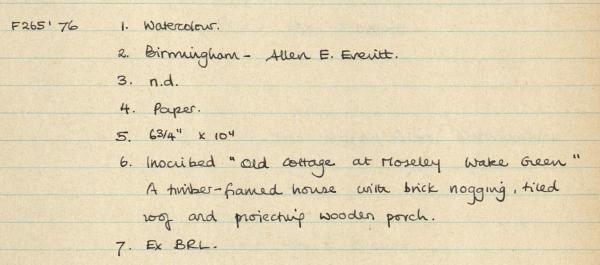 F265'76 1. Watercolour.
2. Birmingham - Allen E. Everitt.
3. n.d.
4. Paper.
5. 6 3/4" x 10"
6. Inscribed "Old Cottage at Moseley Wake Green"
A timber-framed house with brick nogging, tiled
roof and projecting wooden porch.
7. Ex BRL.